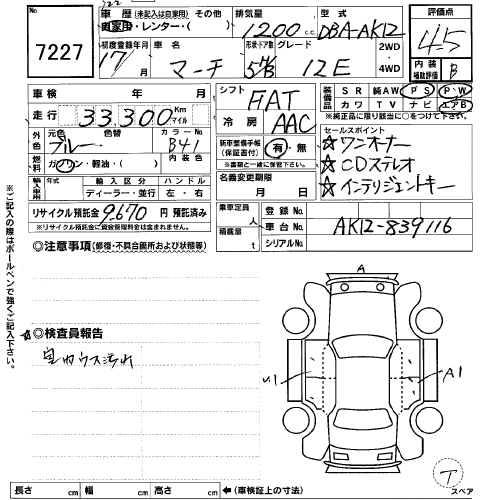 No.
7227
車 歴 (未記入は自家用) その他
自家用・レンター・( )
初度登録年月
17 / 月
車 名
マーチ
排気量
1200 c.c.
型 式
DBA-AK12
形状・ドア数
5 HB
グレード
12E
2WD
・
4WD
評価点
4.5
内 装
補助評価
B
車検 年 月
走行 33,300 Km マイル
外装色 元色 色替 カラーNo.
ブルー B41
燃料 ガソリン・軽油・( ) 内 装 色
輸入車用 年式 輸 入 区 分 ハ ン ド ル
ディーラー・並行 左・右
リサイクル預託金 9,670 円 預託済み
※リサイクル預託金に資金管理料金は含まれません。
シフト
FAT
冷 房
AAC
新車整備手帳
(保証書付)
有・無
※書類と一緒に保管下さい。
名義変更期限
月 日
乗車定員
人
積載量
t
装備品
S R 純AW P S P・W
カワ T V ナビ エアB
※純正品に限り該当に○をつけて下さい。
セールスポイント
☆ワンオーナー
☆CDステレオ
☆インテリジェントキー
登 録 No.
車 台 No. AK12-839116
シリアルNo.
◎注意事項 (修復・不具合箇所および状態等)
◎検査員報告
室内ウス汚れ
※ご記入の際はボールペンで強くご記入下さい。
A
U1
A1
T
スペア
長さ cm 幅 cm 高さ cm ←(車検証上の寸法)